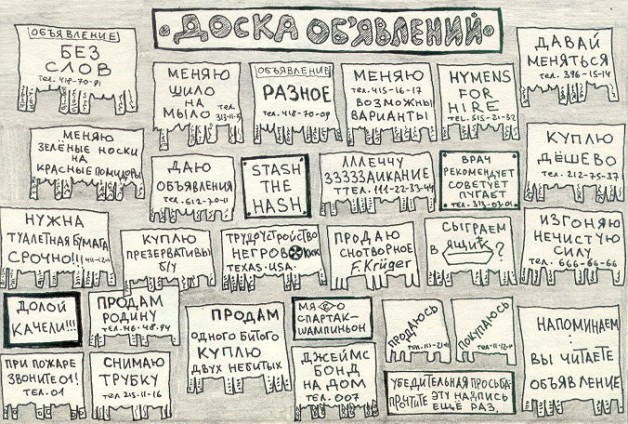 ДОСКА ОБ'ЯВЛЕНИЙ
ОБЪЯВЛЕНИЕ
БЕЗ
СЛОВ
тел. 418-70-91
МЕНЯЮ
ШИЛО
НА
МЫЛО тел.
ОБЪЯВЛЕНИЕ
РАЗНОЕ
тел. 418-70-09
МЕНЯЮ
тел. 415-16-17
ВОЗМОЖНЫ
ВАРИАНТЫ
HYMENS
FOR
HIRE
TEL. 515-21-32
ДАВАЙ
МЕНЯТЬСЯ
тел. 396-15-14
МЕНЯЮ
ЗЕЛЁНЫЕ НОСКИ
НА
КРАСНЫЕ ПОМИДОРЫ
ДАЮ
ОБЪЯВЛЕНИЯ
тел. 612-30-11
STASH
THE
HASH
ЛЛЛЕЧЧУ
ЗЗЗЗЗЗАИКАНИЕ
ТТЕЛ. 111-22-33-44
ВРАЧ
РЕКОМЕНДУЕТ
СОВЕТУЕТ
ПУГАЕТ
тел. 313-03-01
КУПЛЮ
ДЁШЕВО
тел. 212-75-37
НУЖНА
ТУАЛЕТНАЯ БУМАГА
СРОЧНО!!!
КУПЛЮ
ПРЕЗЕРВАТИВЫ
Б/У
ТРУДОУСТРОЙСТВО
НЕГРОВ KKK
TEXAS. USA.
ПРОДАЮ
СНОТВОРНОЕ
F. Krüger
СЫГРАЕМ
В ЯЩИК?
ИЗГОНЯЮ
НЕЧИСТУЮ
СИЛУ
тел. 666-66-66
ДОЛОЙ
КАЧЕЛИ!!!
ПРОДАМ
РОДИНУ
тел. 146-48-94
ПРОДАМ
ОДНОГО БИТОГО
КУПЛЮ
ДВУХ НЕБИТЫХ
СПАРТАК-
ШАМПИНЬОН
ПРОДАЮСЬ
ПОКУПАЮСЬ
НАПОМИНАЕМ:
ВЫ ЧИТАЕТЕ
ОБЪЯВЛЕНИЕ
ПРИ ПОЖАРЕ
ЗВОНИТЕ 01!
ТЕЛ. 01
СНИМАЮ
ТРУБКУ
ТЕЛ 215-11-16
ДЖЕЙМС
БОНД
НА ДОМ
ТЕЛ. 007
УБЕДИТЕЛЬНАЯ ПРОСЬБА:
ПРОЧТИТЕ ЭТУ НАДПИСЬ
ЕЩЁ РАЗ.